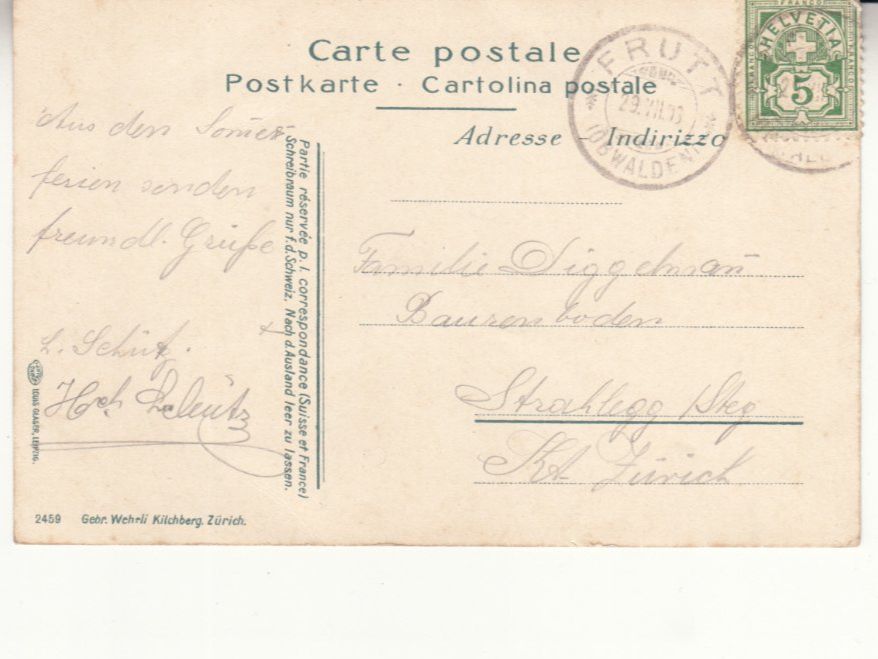 Carte postale
Postkarte · Cartolina postale
Adresse – Indirizzo
FRUTT
29.VII.
(OBWALDEN)
FRANCO
HELVETIA
5
Aus den Somer
ferien senden
freundl. Grüße
L. Schütz.
Hch Schütz
Partie réservée p. l. correspondance (Suisse et France)
Schreibraum nur f. d. Schweiz. Nach d. Ausland leer zu lassen.
Familie Diggelmañ
Baurenboden
Strahlegg /Steg
Kt. Zürich
LOUIS GLASER, LEIPZIG.
2459 Gebr. Wehrli Kilchberg. Zürich.